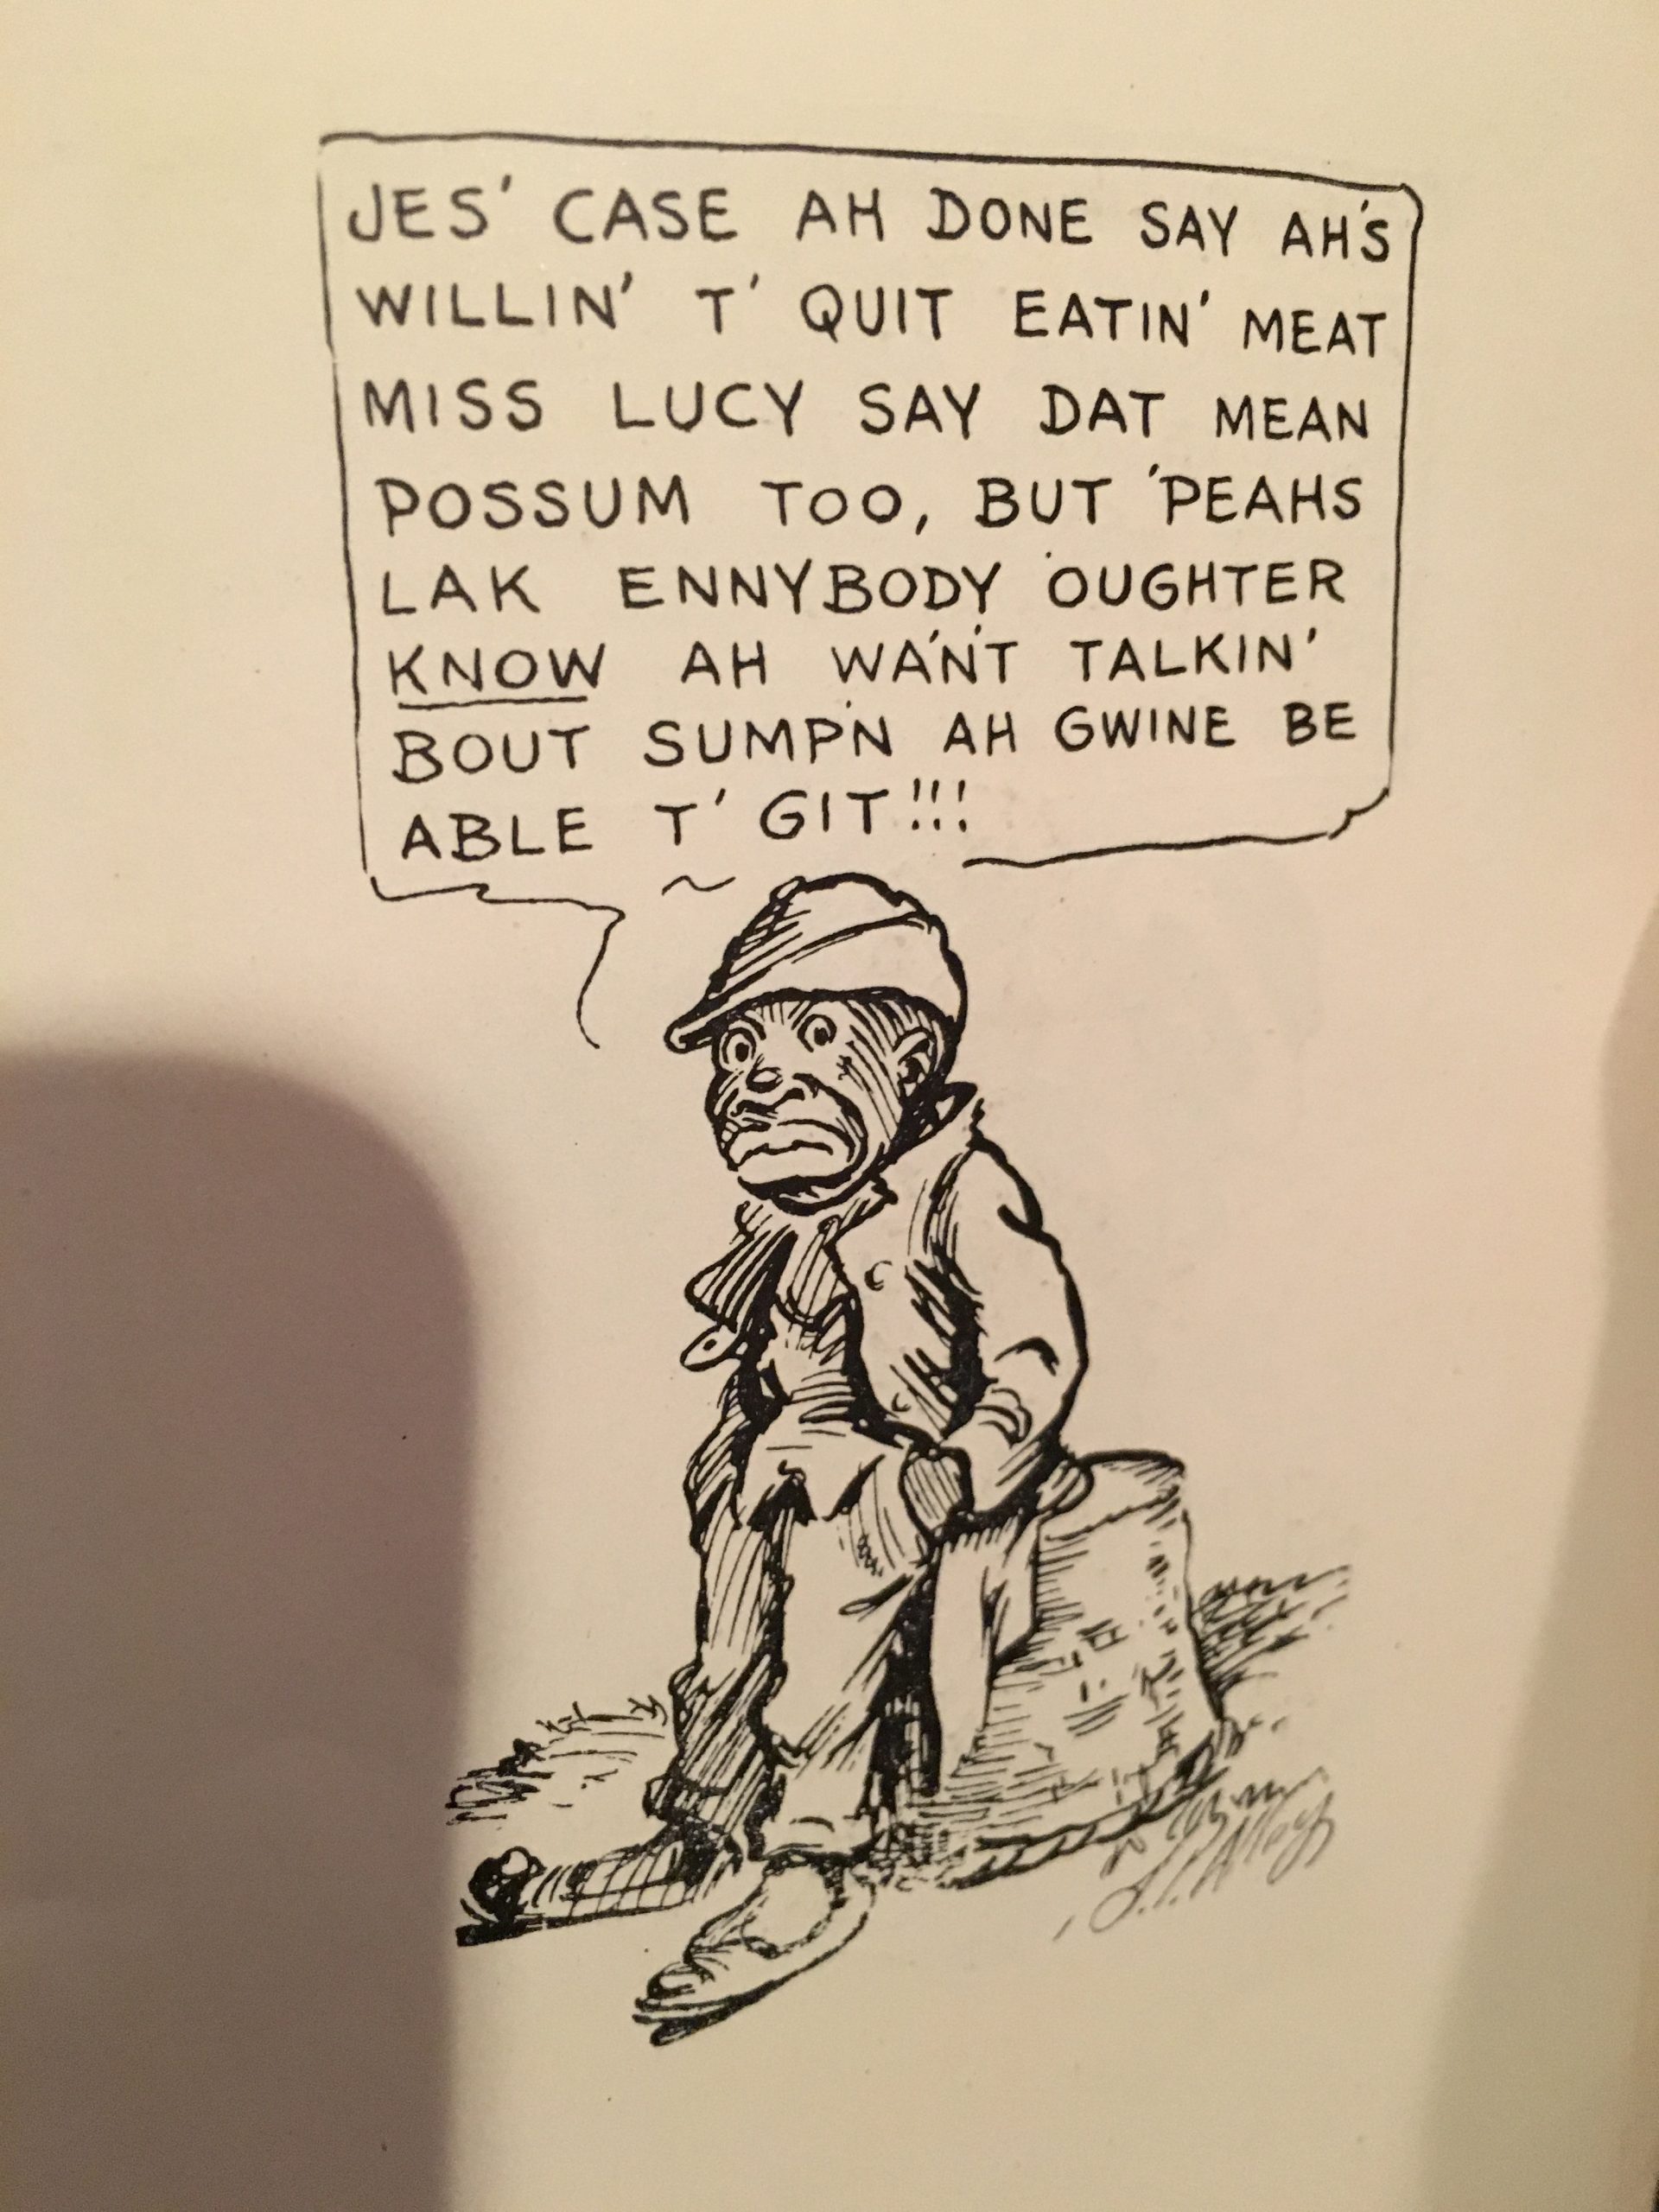 JES' CASE AH DONE SAY AH'S
WILLIN' T' QUIT EATIN' MEAT
MISS LUCY SAY DAT MEAN
POSSUM TOO, BUT 'PEAHS
LAK ENNYBODY OUGHTER
KNOW AH WA'N'T TALKIN'
BOUT SUMP'N AH GWINE BE
ABLE T' GIT!!!